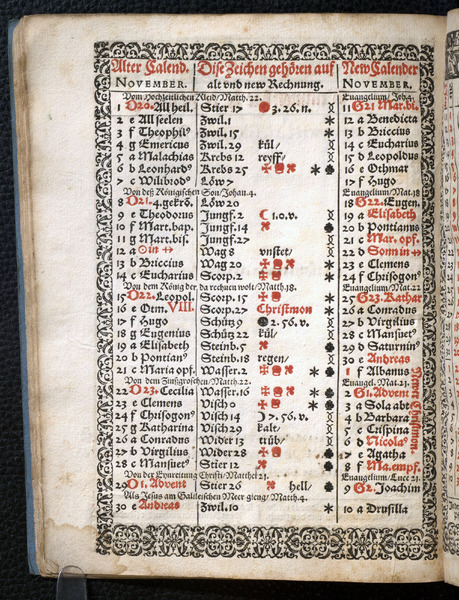 Alter Calend. Dise Zeichen gehören auf New Calender
NOVEMBER. alt vnd new Rechnung. NOVEMBER.
Vom Hochzeitlichen Kleid/Matth. 22. Euangelium/Joha.
1 D20. All heil. Stier 17 3. 26. n. 11 G21 Mar. bi.
2 e All seelen Zwil. 1 12 a Benedicta
3 f Theophilꝰ Zwil. 15 13 b Briccius
4 g Emericus Zwil. 29 kül/ 14 c Eucharius
5 a Malachias Krebs 12 reyff/ 15 d Leopoldus
6 b Leonhardꝰ Krebs 25 16 e Othmar
7 c Wilibrodꝰ Löw 7 17 f Hugo
Von deß Königischen Son/Johan. 4. Euangelium/Mat. 18
8 D21. 4. gekrö. Löw 20 18 G22. Eugen.
9 e Theodorus Jungf. 2 1. o. v. 19 a Elisabeth
10 f Mart. bap. Jungf. 14 20 b Pontianus
11 g Mart. bis. Jungf. 27 21 c Mar. opf.
12 a ☉ in ♐ Wag 8 vnstet/ 22 d Sonn in ♐
13 b Briccius Wag 20 23 e Clemens
14 c Eucharius Scorp. 2 24 f Chrisogonꝰ
Von dem König der da rechnen wolt/Matth. 18. Euangelium/Mat. 22
15 D22. Leopol. Scorp. 15 25 G23. Kathar
16 e Otm. VIII. Scorp. 27 Christmon 26 a Conradus
17 f Hugo Schütz 9 2. 56. v. 27 b Virgilius
18 g Eugenius Schütz 22 kül/ 28 c Mansuetꝰ
19 a Elisabeth Steinb. 5 29 d Saturninꝰ
20 b Pontianꝰ Steinb. 18 regen/ 30 e Andreas
21 c Maria opf. Wasser. 2 1 f Albanus
Von dem Zinßgroschen/Matth. 22. Euangel. Mat. 21.
22 D23. Cecilia Wasser. 16 2 G1. Advent
23 e Clemens Visch 0 3 a Sola abt
24 f Chrisogonꝰ Visch 14 7. 56. v. 4 b Barbara
25 g Katharina Visch 29 kalt/ 5 c Crispina
26 a Conradus Wider 13 trüb/ 6 d Nicolaꝰ
27 b Virgilius Wider 28 7 e Agatha
28 c Mansuetꝰ Stier 12 8 f Ma. empf.
Von der Eynreitung Christi/Matthei 21. Euangelium/Luce 21.
29 D1. Advent Stier 26 hell/ 9 G2. Joachim
Als Jesus am Galileischen Meer gieng/Matth. 4.
30 e Andreas Zwil. 10 10 a Drusilla
Newer Christmon.